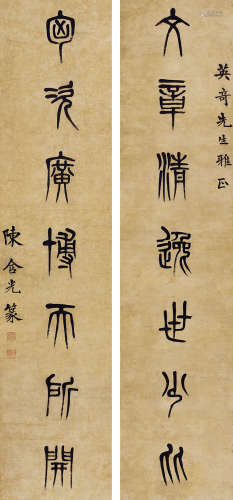 英奇先生雅正
文章清逸世少比
匈次廣博天所開
陳含光篆